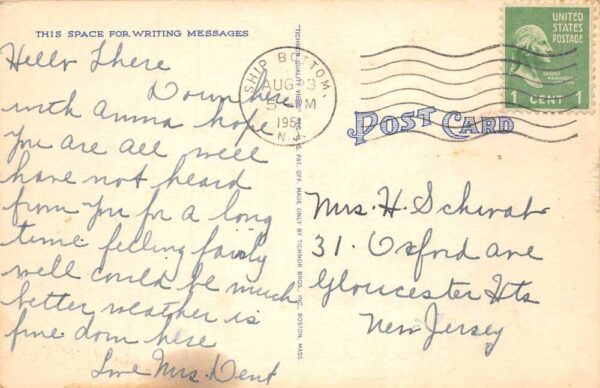 THIS SPACE FOR WRITING MESSAGES
Hello There
Down here
with Anna hope
you are all well
have not heard
from you for a long
time feeling fairly
well could be much
better weather is
fine down here
Love Mrs. Dent
"TICHNOR QUALITY VIEWS" REG. U.S. PAT. OFF. MADE ONLY BY TICHNOR BROS., INC., BOSTON, MASS.
SHIP BOTTOM,
AUG 3
5 PM
1951
N.J.
UNITED
STATES
POSTAGE
1 CENT 1
POST CARD
Mrs. H. Schwab
31. Oxford ave
Gloucester Hts
New Jersey